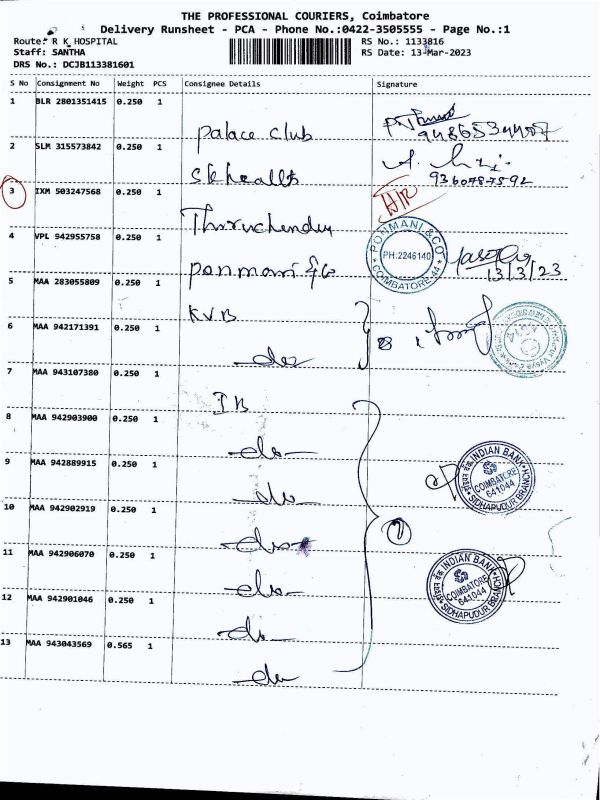 THE PROFESSIONAL COURIERS, Coimbatore
Delivery Runsheet - PCA - Phone No.:0422-3505555 - Page No.:1
Route: R K HOSPITAL
Staff: SANTHA
DRS No.: DCJB113381601
RS No.: 1133816
RS Date: 13-Mar-2023
S No Consignment No Weight PCS Consignee Details Signature
1 BLR 2801351415 0.250 1
Palace club
2 SLM 315573842 0.250 1
9360787592
3 IXM 503247568 0.250 1
4 VPL 942955758 0.250 1
PONMANI & CO
PH:2246140
COIMBATORE-44
13/3/23
Ponmani & Co
5 MAA 283055809 0.250 1
K.V.B
6 MAA 942171391 0.250 1
do
7 MAA 943107380 0.250 1
IB
8 MAA 942903900 0.250 1
do
9 MAA 942889915 0.250 1
INDIAN BANK
COIMBATORE
641044
SIDHAPUDUR BRANCH
do
10 MAA 942902919 0.250 1
do
11 MAA 942906070 0.250 1
INDIAN BANK
COIMBATORE
641044
SIDHAPUDUR BRANCH
do
12 MAA 942901046 0.250 1
do
13 MAA 943043569 0.565 1
do